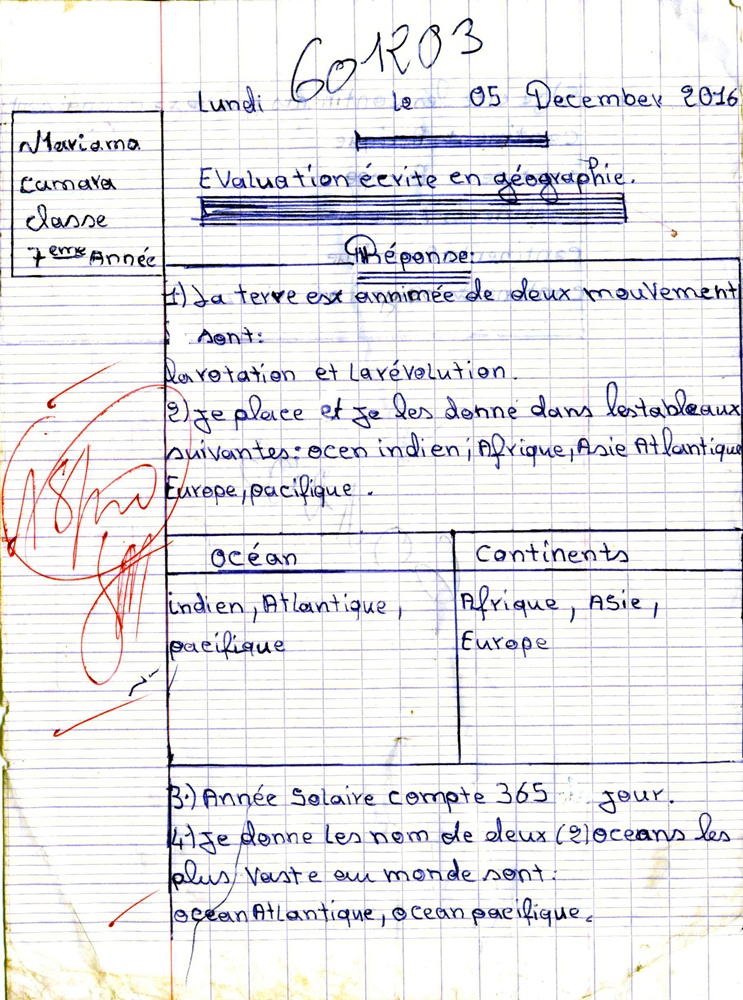 601203
Lundi le 05 December 2016
Mariama
Camara
classe
7eme Année
Evaluation écrite en géographie.
Réponse:
1) La terre est annimée de deux mouvement
sont:
La rotation et La révolution.
2) je place et je les donne dans les tableaux
suivantes: ocen indien; Afrique, Asie Atlantique
Europe, pacifique.
océan
Continents
indien, Atlantique,
pacifique
Afrique, Asie,
Europe
3.) Année Solaire compte 365 jour.
4) je donne Les nom de deux (2) oceans les
plus Vaste au monde sont:
ocean Atlantique, ocean pacifique.